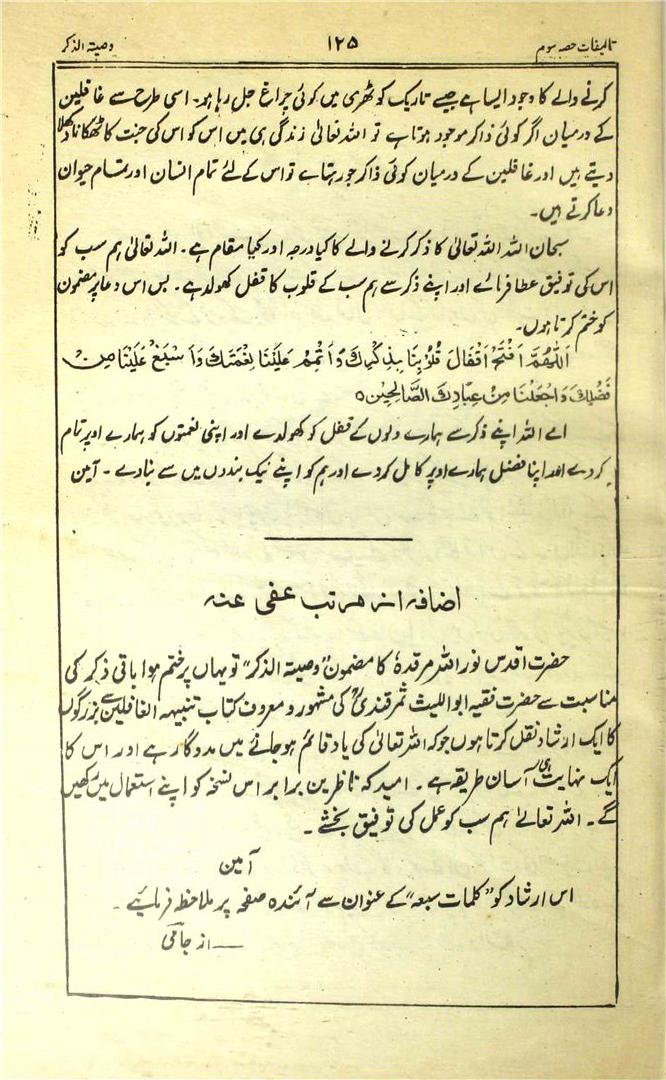 تالیفات حصہ سوم ۱۲۵ وصیۃ الذکر
کرنے والے کا وجود ایسا ہے جیسے تاریک کوٹھری میں کوئی چراغ جل رہا ہو۔ اسی طرح سے غافلین
کے درمیان اگر کوئی ذاکر موجود ہوتا ہے تو اللہ تعالیٰ زندگی ہی میں اس کو اس کی جنت کا ٹھکانا دکھلا
دیتے ہیں اور غافلین کے درمیان کوئی ذاکر جو رہتا ہے تو اس کے لئے تمام انسان اور تمام حیوان
دعا کرتے ہیں۔
سبحان اللہ اللہ تعالیٰ کا ذکر کرنے والے کا کیا درجہ اور کیا مقام ہے۔ اللہ تعالیٰ ہم سب کو
اس کی توفیق عطا فرمائے اور اپنے ذکر سے ہم سب کے قلوب کا قفل کھولدے۔ بس اس دعا پر مضمون
کو ختم کرتا ہوں۔
اَللّٰهُمَّ افْتَحْ اَقْفَالَ قُلُوْبِنَا بِذِكْرِكَ وَاَتْمِمْ عَلَيْنَا نِعْمَتَكَ وَاَسْبِغْ عَلَيْنَا مِنْ
فَضْلِكَ وَاجْعَلْنَا مِنْ عِبَادِكَ الصَّالِحِيْنَ ○
اے اللہ اپنے ذکر سے ہمارے دلوں کے قفل کو کھولدے اور اپنی نعمتوں کو ہمارے اوپر تمام
کر دے اور اپنا فضل ہمارے اوپر کامل کر دے اور ہم کو اپنے نیک بندوں میں سے بنا دے ۔ آمین
اضافہ از مرتب عفی عنہ
حضرت اقدس نور اللہ مرقدہٗ کا مضمون "وصیۃ الذکر" تو یہاں پر ختم ہوا باقی ذکر کی
مناسبت سے حضرت فقیہ ابواللیث سمرقندیؒ کی مشہور و معروف کتاب تنبیہہ الغافلین سے بزرگوں
کا ایک ارشاد نقل کرتا ہوں جو کہ اللہ تعالیٰ کی یاد قائم ہو جانے میں مددگار ہے اور اس کا
ایک نہایت ہی آسان طریقہ ہے۔ امید کہ ناظرین برابر اس نسخہ کو اپنے استعمال میں رکھیں
گے۔ اللہ تعالےٰ ہم سب کو عمل کی توفیق بخشے۔
آمین
اس ارشاد کو "کلمات سبعہ" کے عنوان سے آئندہ صفحہ پر ملاحظہ فرمائیے۔
— از جامی